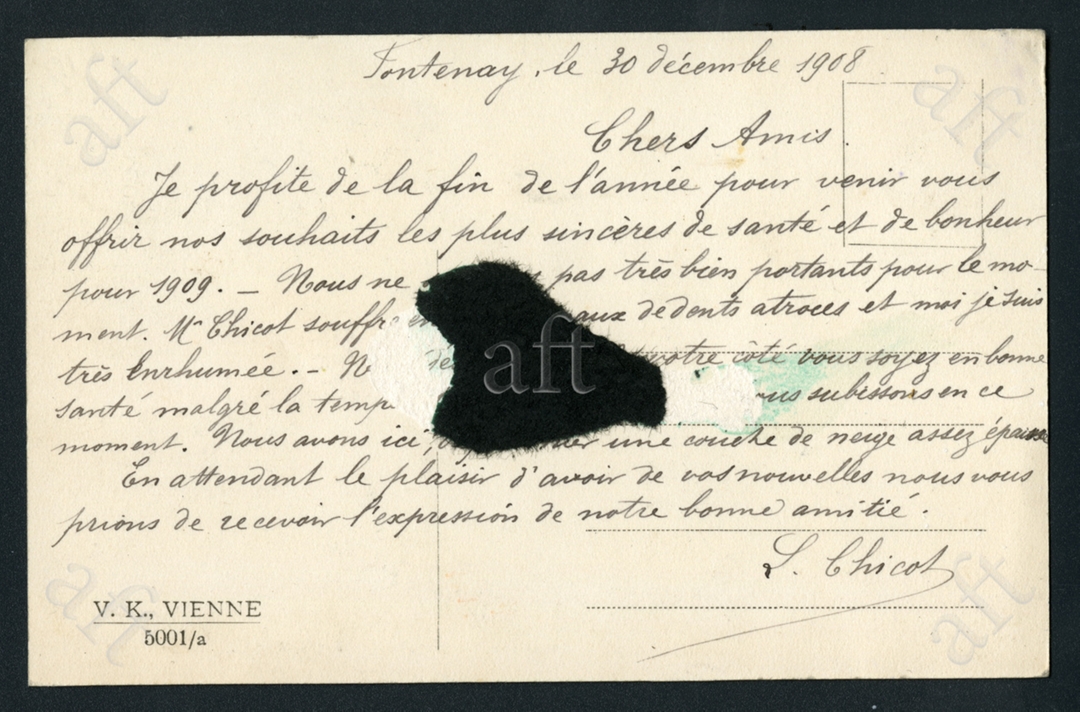 Fontenay, le 30 décembre 1908
Chers Amis
Je profite de la fin de l'année pour venir vous
offrir nos souhaits les plus sincères de santé et de bonheur
pour 1909. _ Nous ne pas très bien portants pour le mo-
ment. Mr Chicot souffre aux de dents atroces et moi je suis
très enrhumée. - votre côté vous soyez en bonne
santé malgré la subissons en ce
moment. Nous avons ici, une couche de neige assez épaisse
En attendant le plaisir d'avoir de vos nouvelles nous vous
prions de recevoir l'expression de notre bonne amitié.
S. Chicot
V. K., VIENNE
5001/a
aft
aft
aft
aft
aft